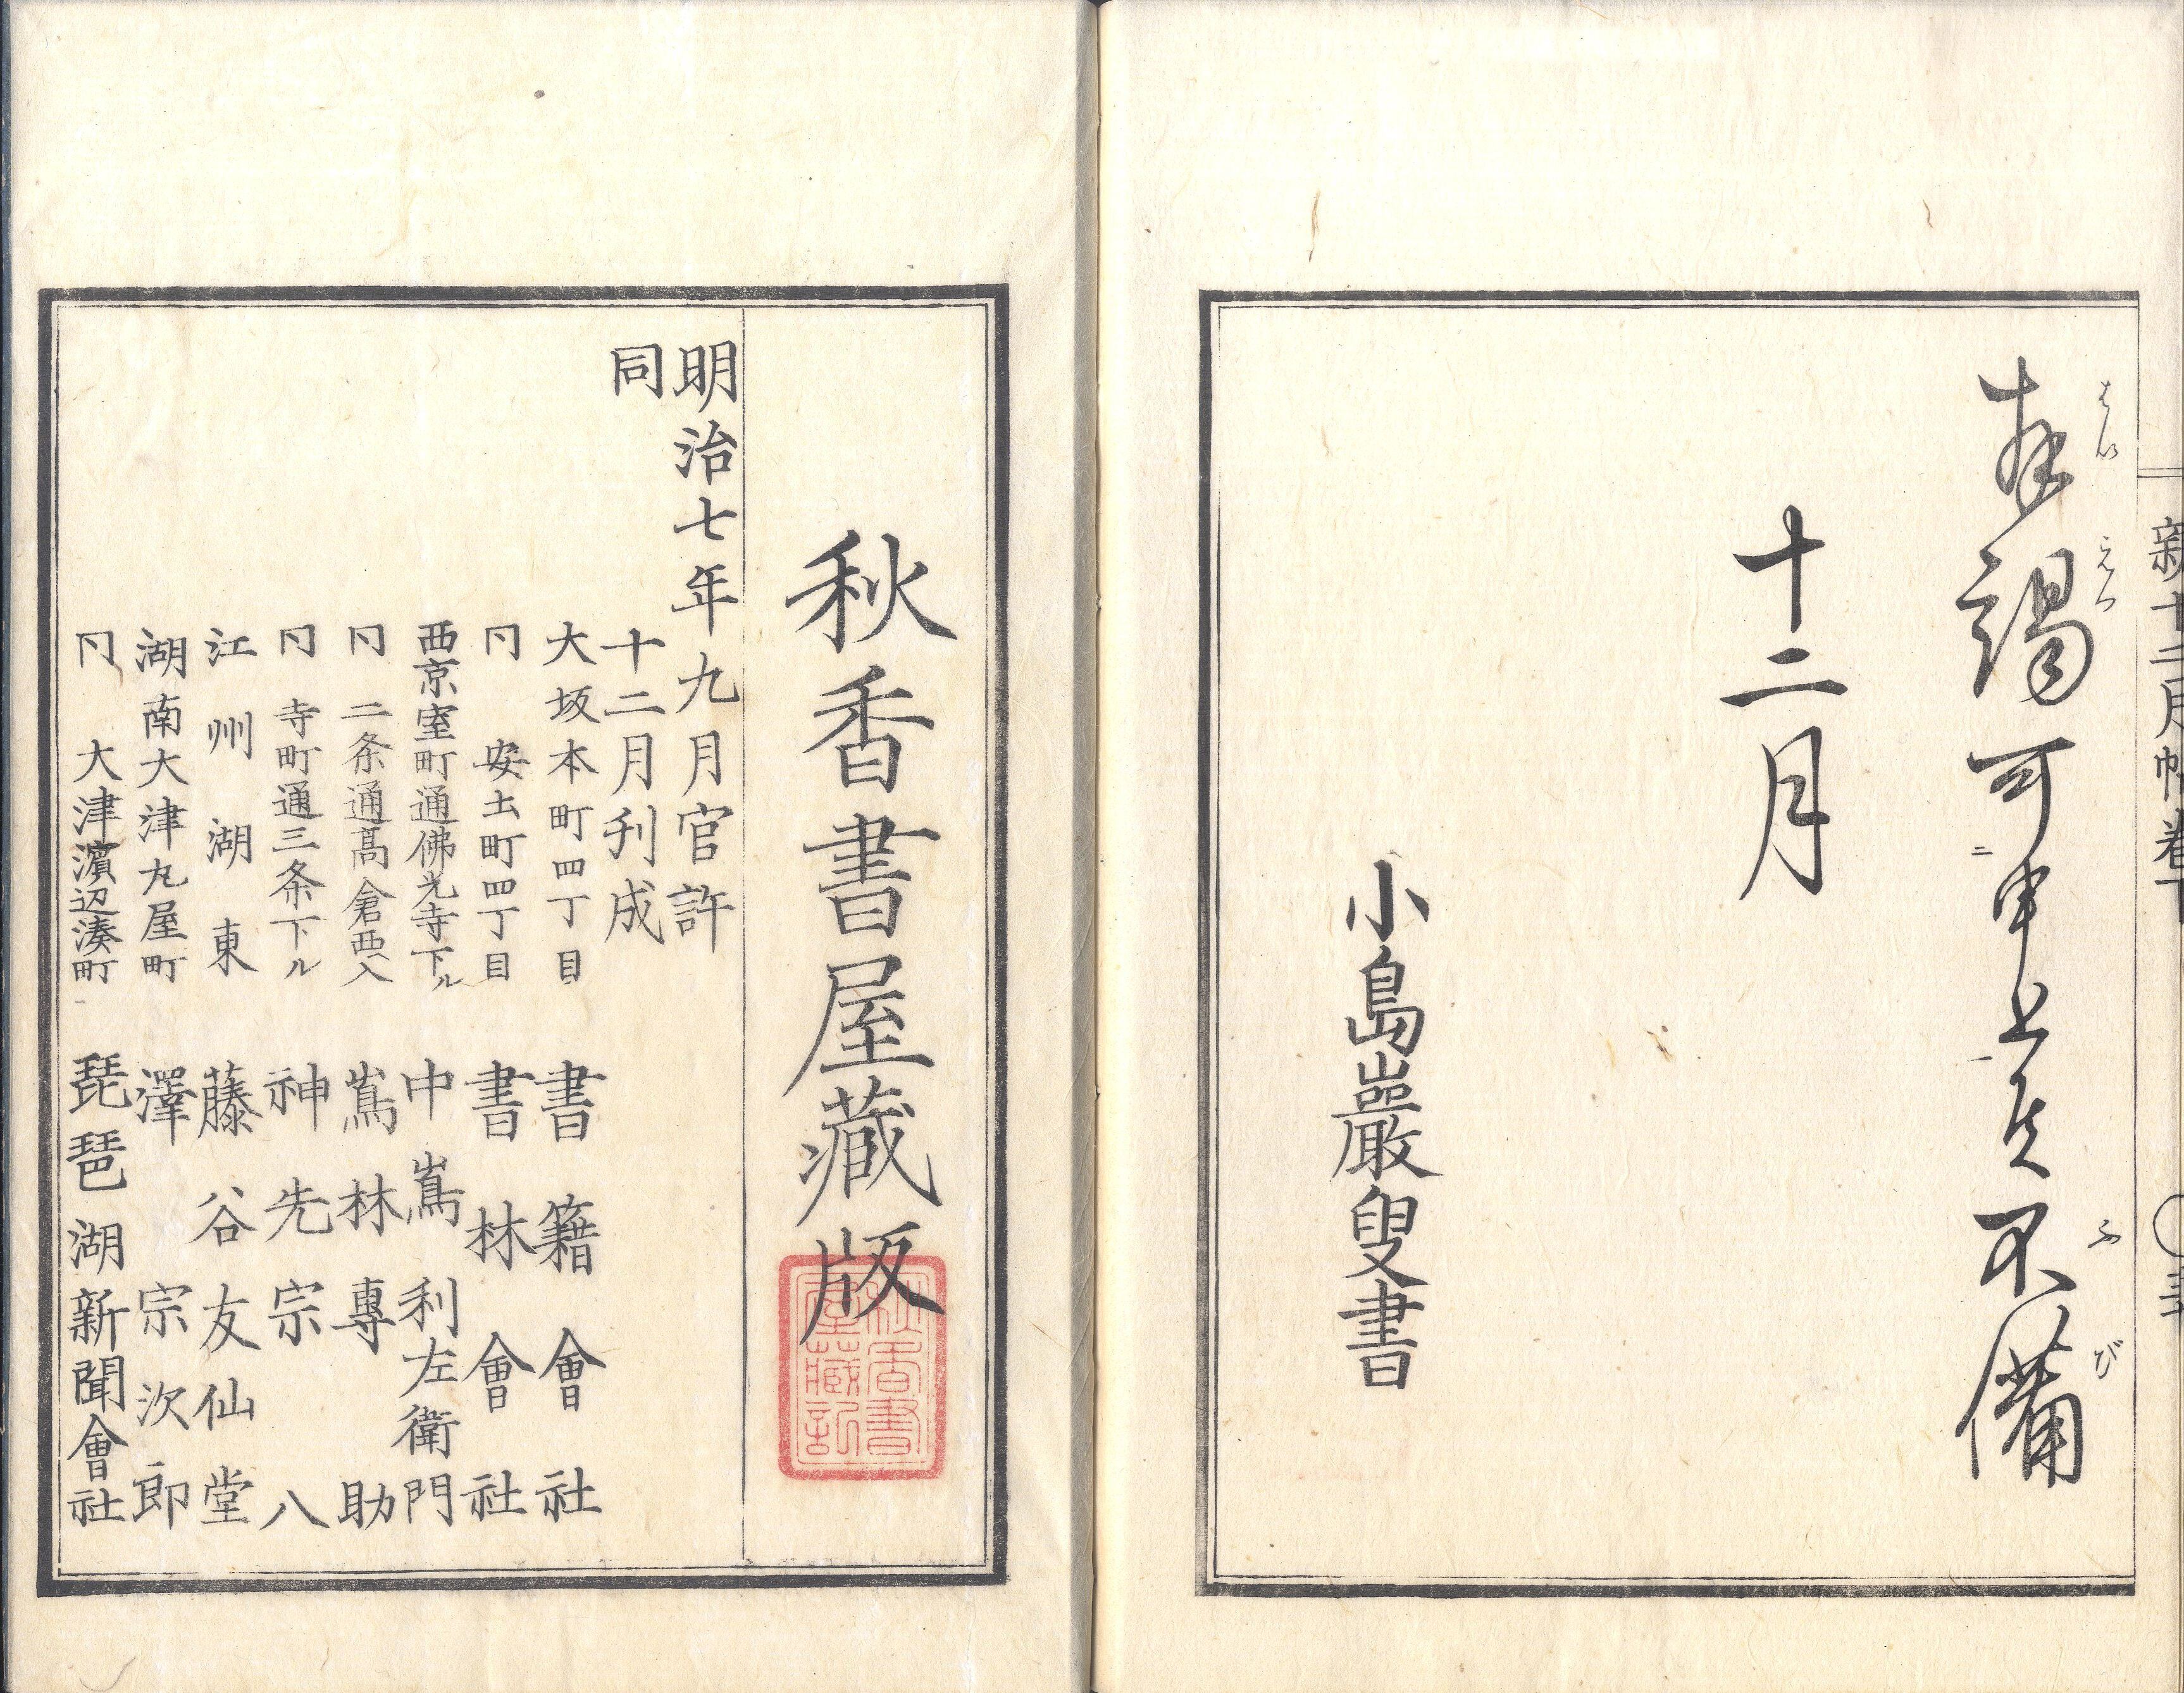 新十二月帖卷下
拜謁可申上候不備
はい
えつ
ふ
び
二
一
十二月
小島巖叟書
秋香書屋藏版
秋香書屋藏記
明治七年九月官許
同 十二月刊成
大坂本町四丁目 書籍會社
冋 安土町四丁目 書林會社
西京室町通佛光寺下ル 中嶌利左衛門
冋 二条通髙倉西入 嶌林專助
冋 寺町通三条下ル 神先宗八
江州湖東 藤谷友仙堂
湖南大津丸屋町 澤宗次郎
冋 大津濵辺湊町 琵琶湖新聞會社